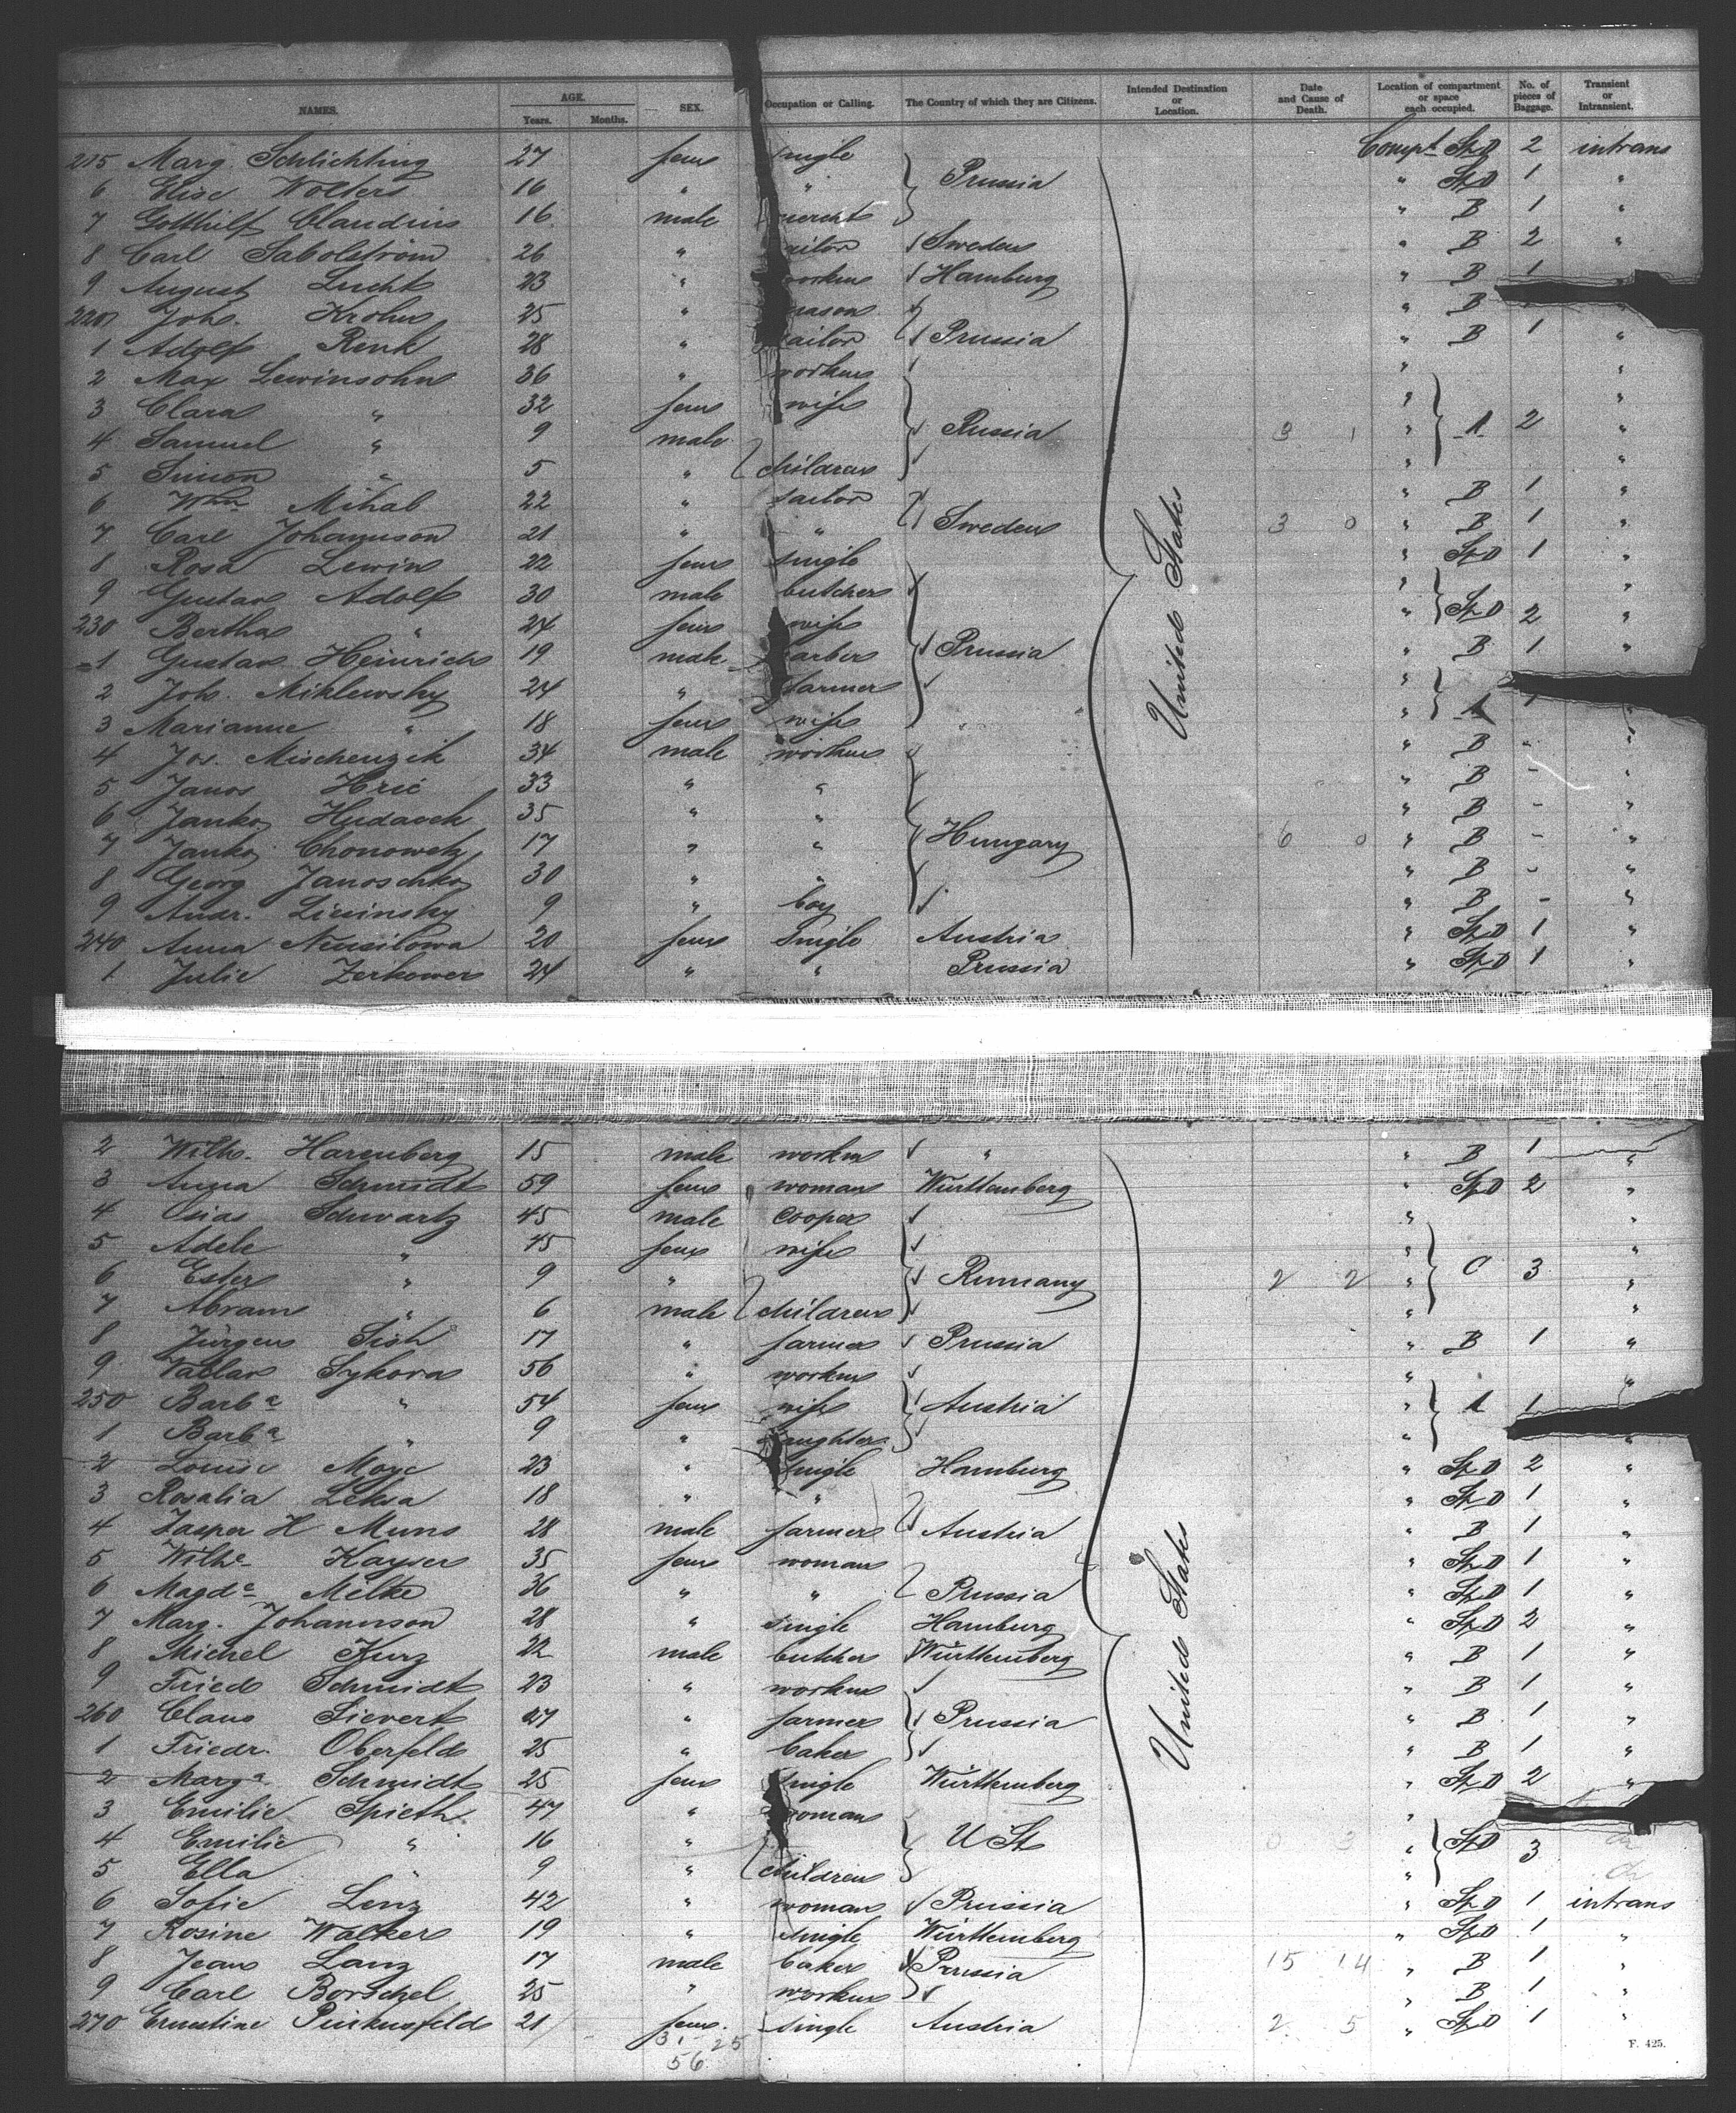 NAMES. AGE. Years. Months. SEX. Occupation or Calling. The Country of which they are Citizens. Intended Destination or Location. Date and Cause of Death. Location of compartment or space each occupied. No. of pieces of Baggage. Transient or Intransient.
215 Marg. Schlichting 27 fem single Compt St D 2 intrans
6 Elise Wolters 16 " " Prussia " St D 1 "
7 Gotthilf Claudius 16 male mercht " B 1 "
8 Carl 26 " sailor Sweden " B 2 "
9 August Lucht 23 " worker Hamburg " B 1
220 Joh. Krohn 25 " mason " B
1 Adolf Renk 28 " sailor Prussia " B 1 "
2 Max Lewinsohn 36 " worker " "
3 Clara " 32 fem wife " "
4 Samuel " 9 male Russia 3 1 " A 2 "
5 Simon " 5 " children " "
6 Wm Mihal 22 " sailor " B 1 "
7 Carl Johannson 21 " " Sweden 3 0 " B 1 "
8 Rosa Lewin 22 fem single " St D 1 "
9 Gustav Adolf 30 male butcher " "
230 Bertha " 24 fem wife " St D 2 "
1 Gustav Heinrich 19 male barber Prussia " B 1 "
2 Joh. Miklewsky 24 " farmer "
3 Marianne " 18 fem wife " A 1 "
4 Jos. Mischenzik 34 male worker " B - "
5 Janos Hric 33 " " " B - "
6 Janko Hudacek 35 " " " B - "
7 Janko Chonowetz 17 " " Hungary 6 0 " B - "
8 Georg Janoschko 30 " " " B - "
9 Andr. 9 " boy " B - "
240 Anna 20 fem Single Austria " St D 1 "
1 Julie Zerkower 24 " " Prussia " St D 1 "
United States
2 Wilh. Harenberg 15 male worker " " B 1 "
3 Anna Schmidt 59 fem woman Württemberg " St D 2 "
4 Osias Schwartz 45 male cooper " "
5 Adele " 45 fem wife " "
6 Ester " 9 " Rumany 2 2 " C 3 "
7 Abram " 6 male children " "
8 Jürgen 17 " farmer Prussia " B 1 "
9 Vaclav Sykora 56 " worker " "
250 Barba " 54 fem wife Austria " A 1
1 Barba " 9 " daughter " "
2 Louise Moje 23 " single Hamburg " St D 2 "
3 Rosalia Leksa 18 " " " St D 1 "
4 Jasper H Muns 28 male farmer Austria " B 1 "
5 Wilhe Kayser 35 fem woman " St D 1 "
6 Magde Melke 36 " " Prussia " St D 1 "
7 Marg. Johannson 28 " single Hamburg " St D 2 "
8 Michel Kurz 22 male butcher Württemberg " B 1 "
9 Fried Schmidt 23 " worker " B 1 "
260 Claus Sievert 27 " farmer Prussia " B 1 "
1 Friedr. Oberfeld 25 " baker " B 1 "
2 Marga Schmidt 25 fem single Württemberg " St D 2 "
3 Emilie Spieth 47 " woman "
4 Emilie " 16 " U St 0 3 " St D 3
5 Ella " 9 " children "
6 Sofie Lenz 42 " woman Prussia " St D 1 intrans
7 Rosine Walker 19 " single Württemberg " St D 1 "
8 Jean Lanz 17 male baker Prussia 15 14 " B 1 "
9 Carl Borschel 25 " worker " B 1 "
270 Ernestine Pinkusfeld 21 fem. single Austria 2 5 " St D 1 "
United States
31 - 25
56
F. 425.